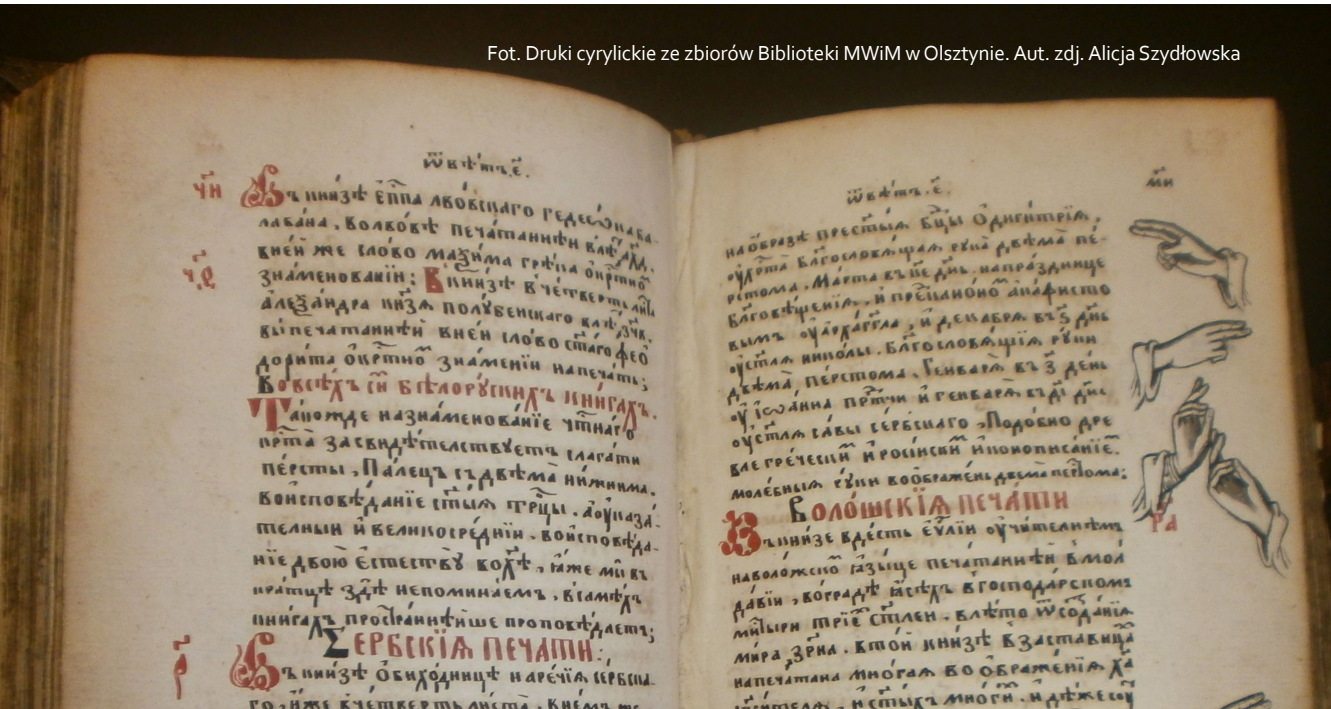 Fot. Druki cyrylickie ze zbiorów Biblioteki MWiM w Olsztynie. Aut. zdj. Alicja Szydłowska
ѿвѣтъ.є҃.
чи҃
Въ книзѣ єп҃па лвовскаго гедеѡна ба-
лабана, волвовѣ печатаннѣй влѣ
вней же слово маѯима грека ѡ крⷭтно
знаменованїи: Вкнизѣ вчетверть
алеѯандра кнѧзѧ полубенскаго влѣ
выпечатаннѣй вней слово ст҃аго ѳео
дорита ѡ крⷭтно знаменїи напечать;
Во всѣхъ сї бѣлорускихъ книгахъ.
Такожде на знаменованїе чтⷭнаго
крⷭта засвидѣтелствуетъ слагати
персты, Палецъ съ двѣма нижнима.
во исповѣданїе ст҃ыѧ трⷪцы. а оуказа-
телный и великосреднїи. во исповѣда-
нїе двою єстеству во хрⷭтѣ, ꙗже мы въ
кратцѣ здѣ непоминаемъ, всамѣхъ
книгахъ пространнѣйше проповѣдаетъ;
Сербскїѧ печати:
р҃
Въ книзѣ ѡбиходницѣ нарѣчїѧ сербска-
го, иже вчетверть листа, внемъ же
ѿвѣтъ.є҃.
ми
на ѡбразѣ прест҃ыѧ бц҃ы Ѻдигитрїѧ,
оу хрⷭта бл҃гословѧщаѧ рука двѣма пе-
рстома. Марта въ к҃е дн҃ь. на празднице
бл҃говѣщенїѧ, и акаѳисто
вымъ оу арха́гг҃ла, и декабрѧ въ ѕ҃ дн҃ь
николы. бл҃гословѧщїѧ руки
двѣма перстома. Генварѧ въ з҃ день
оу іѡанна прⷣтчи и генварѧ въ д҃і дн҃ь
савы сербскаго, Подобно дре
вле греческїи и росїискїи иконописанїе.
молебныѧ руки воѡбражены двема перстома;
Волошскїѧ печати
ра
Въ книзе вдесть єѵⷢлїи оучителнѣмъ
на воложско ꙗзыце печатаннѣй вмол
давїи, во градѣ ꙗсѣхъ вгосподарскомъ
мн҃тыри трїе ст҃леи. влѣто ѿ созданїѧ
мира. втой книзѣ взаставица
напечатана многаѧ воѡбраженїѧ хрⷭта
спасителѧ, и ст҃ыхъ многи. идѣже